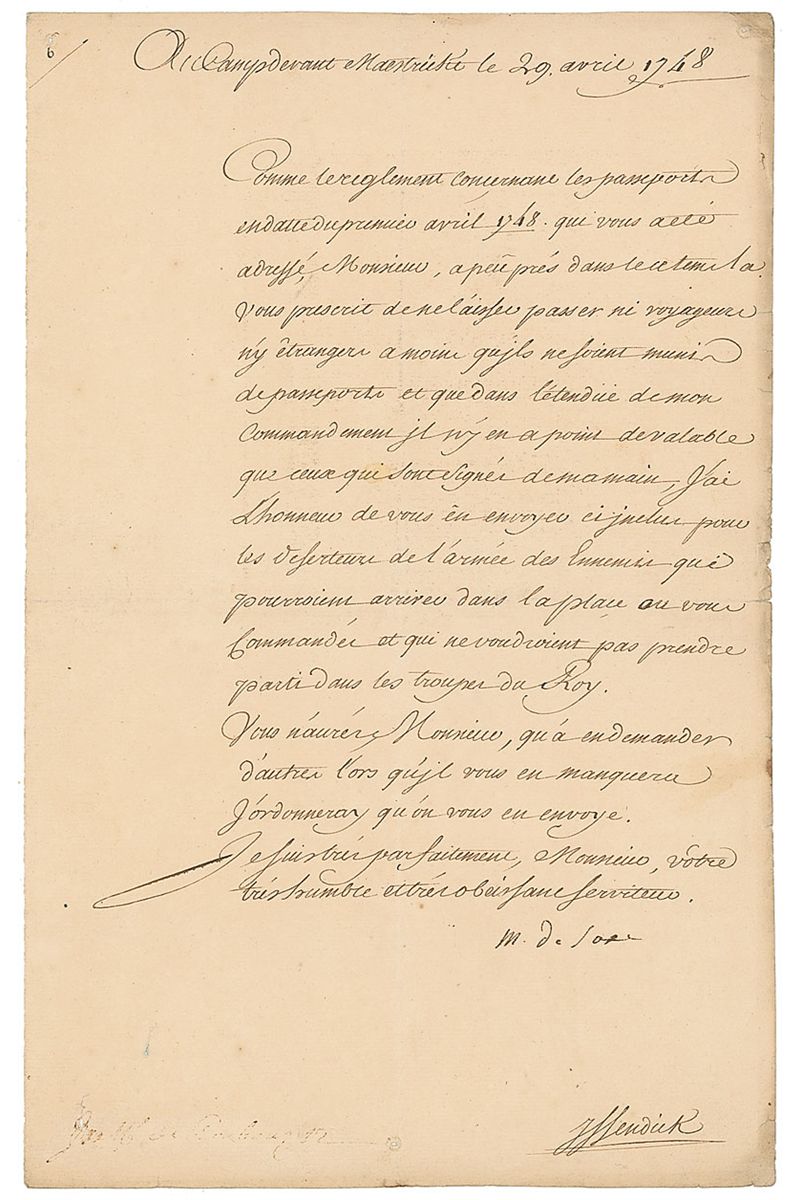 6
Au Camp devant Maestrickt le 29. avril 1748
Comme le reglement concernant les passeports
en datte du premier avril 1748. qui vous a eté
adressé, Monsieur, a peu prés dans ce tems la.
Vous prescrit de ne laisser passer ni voyageurs
n'y êtrangers a moins qu'jls ne soient munis
de passeports et que dans l'étendüe de mon
Commandement jl n'y en a point de valable
que ceux qui sont signés de ma main, J'ai
L'honneur de vous en envoyer ci jnclus pour
les deserteurs de l'armée des Ennemis qui
pourroient arriver dans la place ou vous
Commandés et qui ne voudroient pas prendre
parti dans les troupes du Roy.
Vous n'aurés Monsieur, qu'a en demander
d'autres lors qu'jl vous en manquera
J'ordonneray qu'on vous en envoye.
Je suis trés parfaitement, Monsieur, vôtre
trés humble et trés obéissant serviteur.
M. de Saxe